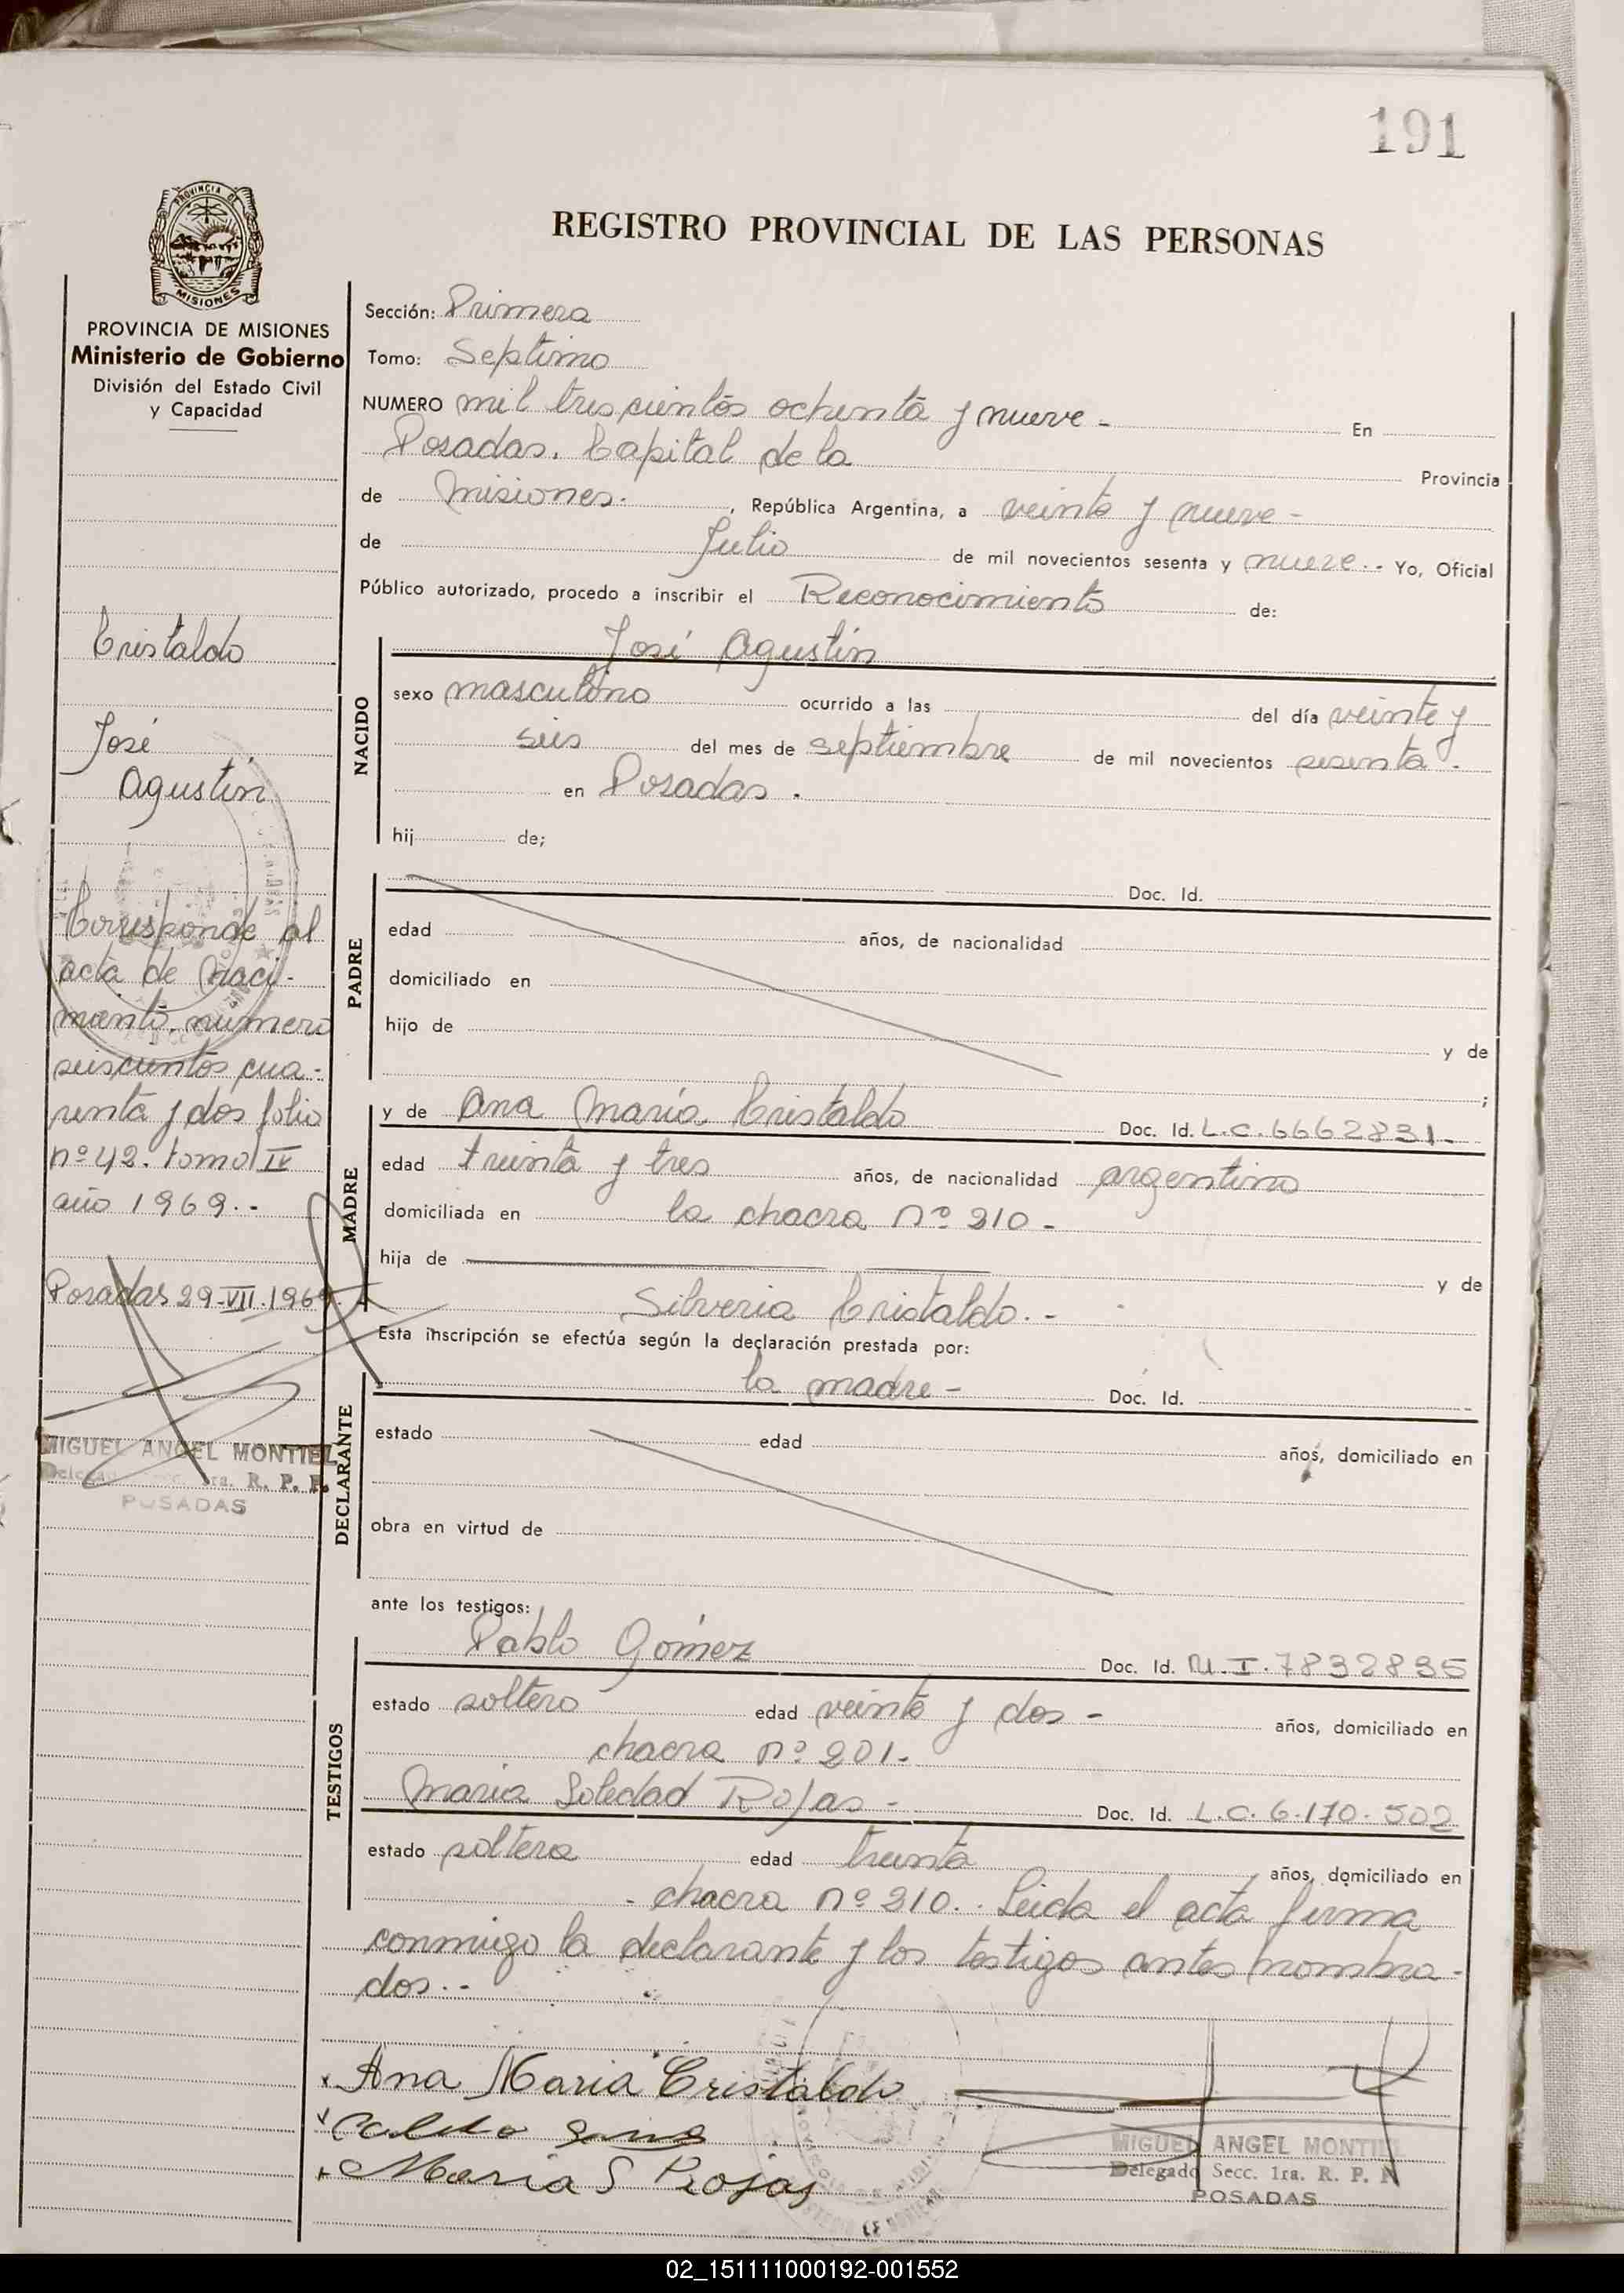 191
PROVINCIA DE
MISIONES
REGISTRO PROVINCIAL DE LAS PERSONAS
PROVINCIA DE MISIONES
Ministerio de Gobierno
División del Estado Civil
y Capacidad
Cristaldo
José
Agustín
Corresponde al
acta de naci-
miento, numero
seiscientos cua-
renta y dos folio
nº 42. tomo IV
año 1969.-
Posadas 29-VII-1969
MIGUEL ANGEL MONTIEL
Delegado Secc. 1ra. R. P. P.
POSADAS
Sección: Primera
Tomo: Septimo
NUMERO mil trescientos ochenta y nueve - En
Posadas. Capital de la Provincia
de Misiones. , República Argentina, a veinte y nueve -
de Julio de mil novecientos sesenta y nueve.- Yo, Oficial
Público autorizado, procedo a inscribir el Reconocimiento de:
NACIDO
José Agustín
sexo masculino ocurrido a las del día veinte y
seis del mes de septiembre de mil novecientos sesenta.
en Posadas.
hij de;
PADRE
Doc. Id.
edad años, de nacionalidad
domiciliado en
hijo de y de
;
MADRE
y de Ana María Cristaldo Doc. Id. L.C. 6662831.-
edad treinta y tres años, de nacionalidad argentina
domiciliada en la chacra nº 210 -
hija de y de
Silveria Cristaldo.-
Esta inscripción se efectúa según la declaración prestada por:
DECLARANTE
la madre - Doc. Id.
estado edad años, domiciliado en
obra en virtud de
ante los testigos:
TESTIGOS
Pablo Gómez Doc. Id. M.I. 7832835
estado soltero edad veinte y dos - años, domiciliado en
chacra nº 201.-
Maria Soledad Rojas - Doc. Id. L.C. 6.170.502
estado soltera edad treinta años, domiciliado en
- chacra nº 210.. Leida el acta firma
conmigo la declarante y los testigos antes nombra-
dos.-
Ana Maria Cristaldo
Maria S Rojas
MIGUEL ANGEL MONTIEL
Delegado Secc. 1ra. R. P. P
POSADAS
02_151111000192-001552